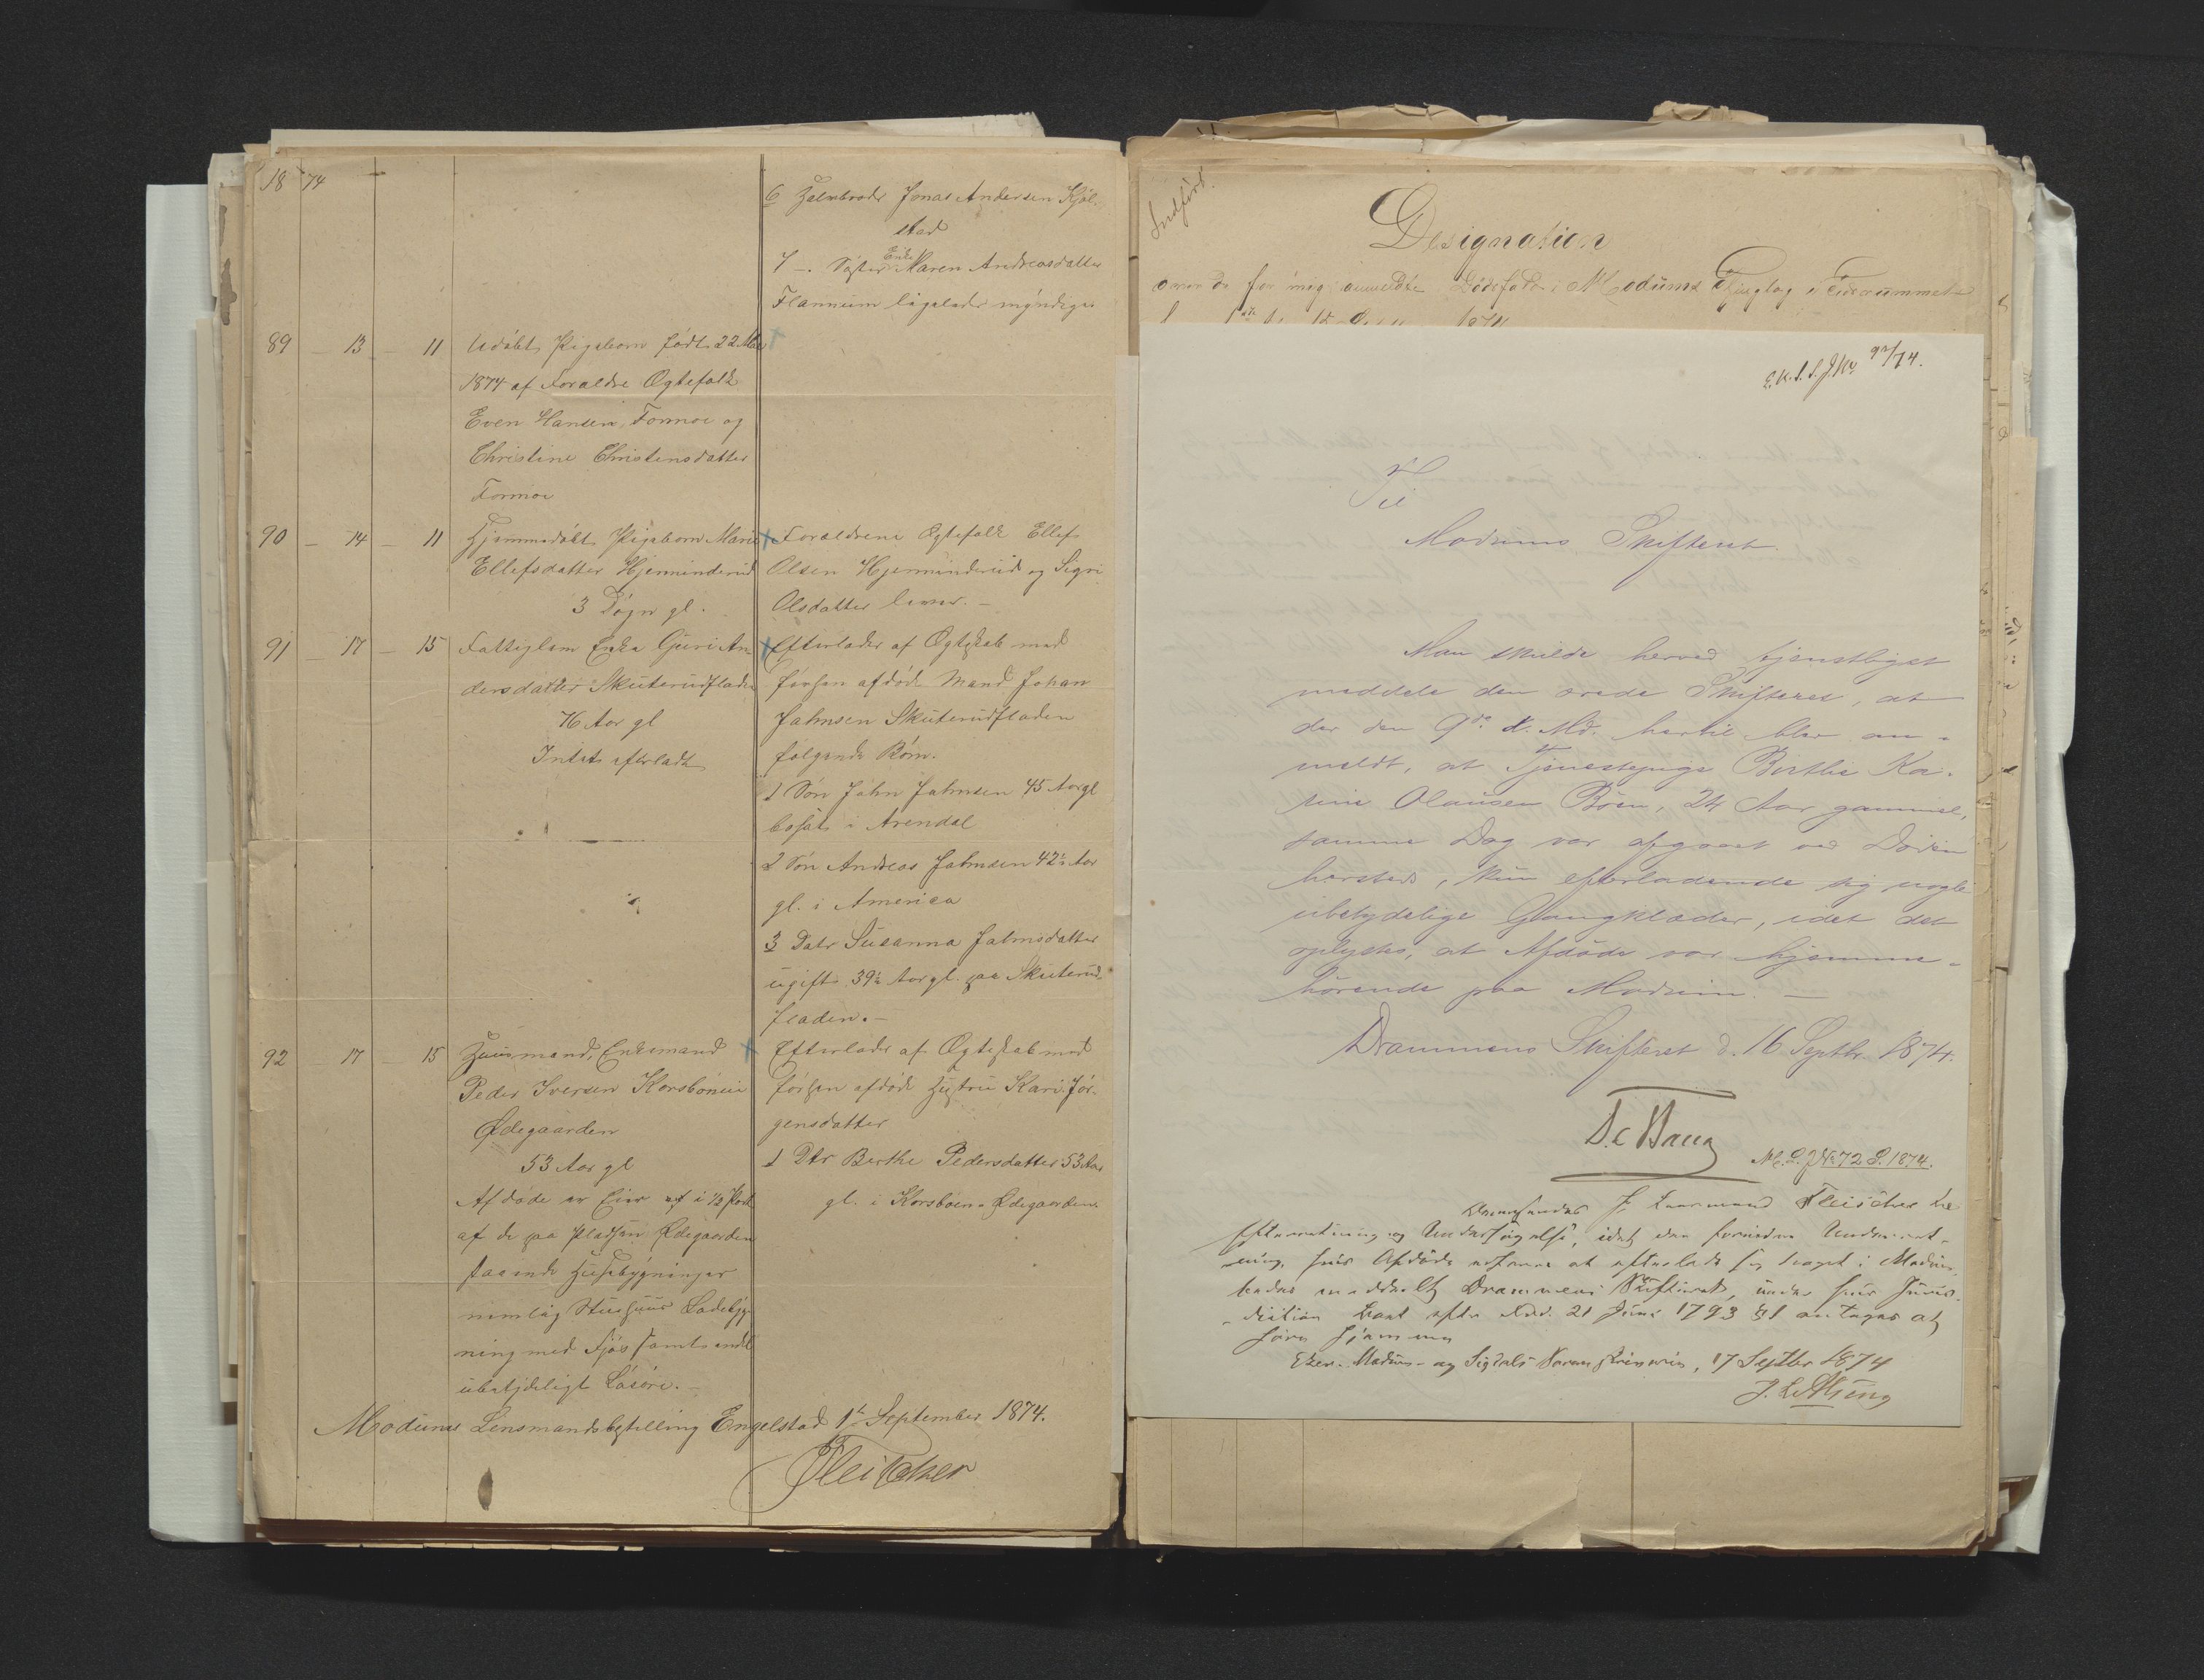 18 74
6 Halvbroder Jonas Andersen Kjöl-
stad
7 -. Søster Enke Maren Andreasdatter
Flannum ligeledes myndige
89 - 13 - 11 Udöbt Pigebarn født 22 Mai
1874 af Forældre Ægtefolk
Even Hansen Formoe og
Christine Christensdatter
Formoe
90 - 14 - 11 Hjemmedöbt Pigebarn Marie
Ellefsdatter Hjemminderud
3 Døgn gl.
Forældrene Ægtefolk Ellef
Olsen Hjemminderud og Sigri
Olsdatter lever. -
91 - 17 - 15 Fattiglem Enke Guri An-
dersdatter Skuterudfladen
76 Aar gl
Intet efterladt
Efterlader af Ægteskab med
forhen afdøde Mand Johan
Jahnsen Skuterudfladen
følgende Børn.
1 Søn John Jahnsen 45 Aar gl
bosat i Arendal
2 Søn Andreas Jahnsen 42½ Aar
gl. i America
3 Datr Susanna Jahnsdatter
ugift 39½ Aar gl. paa Skuterud-
fladen. -
92 - 17 - 15 Huusmand, Enkemand
Peder Iversen Korsböneie
Ødegaarden
53 Aar gl
Afdøde er Eier af i ½ Part
af de paa Pladsen Ødegaarden
staaende Huusbygninger
nemlig Stuehuus Ladebyg-
ning med Fjös samt endel
ubetydeligt Løsøre. -
Efterlader af Ægteskab med
forhen afdøde Hustru Kari Jör-
gensdatter
1 Dtr Berthe Pedersdatter 53 Aar
gl. i Korsböen Ødegaarden
Modums Lensmandsbestilling Engelstad 1t September 1874.
Fleischer
Indført.
Designation
over de for mig anmeldte Dødsfald i Modums Thinglag i Tidsrummet
Til
Modums Skifteret.
Man skulde herved tjenstligst
meddele den ærede Skifteret, at
der den 9de d. Md. hertil blev an-
meldt, at Tjenestepige Berthe Ka-
rine Olausen Böen, 24 Aar gammel,
samme Dag var afgaaet ved Døden
hersteds, kun efterladende sig nogle
ubetydelige Gangklæder, idet det
oplystes, at Afdøde var hjemme-
hörende paa Modum. -
Drammens Skifteret d. 16 Septbr. 1874.
No 72 S. 1874.
Lensmand Fleischer til
Efterretning og Undersøgelse, idet den fornødne Underret-
ning, hvis Afdøde maatte at efterlade sig noget i Modum,
bedes meddelt Drammens Skifteret, under hvis Juris-
diction Boet efter Frdn. 21 Juni 1793 § 1 antages at
høre hjemme
Eker- Modum- og Sigdals Sorenskriveri, 17 Septbr 1874